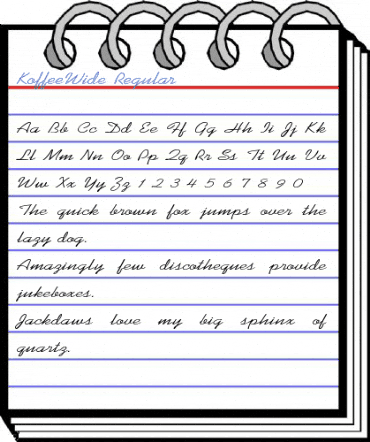 KoffeeWide Regular
Aa Bb Cc Dd Ee Ff Gg Hh Ii Jj Kk
Ll Mm Nn Oo Pp Qq Rr Ss Tt Uu Vv
Ww Xx Yy Zz 1 2 3 4 5 6 7 8 9 0
The quick brown fox jumps over the
lazy dog.
Amazingly few discotheques provide
jukeboxes.
Jackdaws love my big sphinx of
quartz.